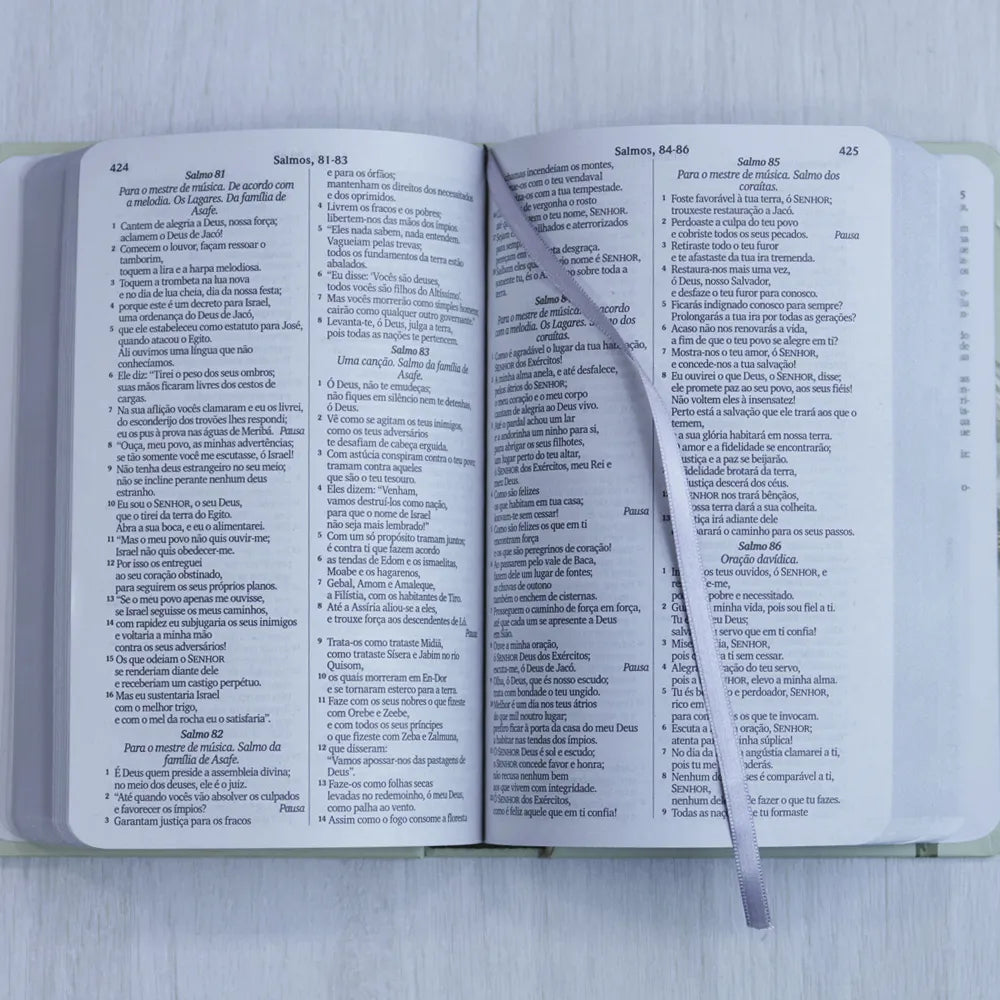 424
Salmos, 81-83
Salmo 81
Para o mestre de música. De acordo com
a melodia. Os Lagares. Da família de
Asafe.
1 Cantem de alegria a Deus, nossa força;
aclamem o Deus de Jacó!
2 Comecem o louvor, façam ressoar o
tamborim,
toquem a lira e a harpa melodiosa.
3 Toquem a trombeta na lua nova
e no dia de lua cheia, dia da nossa festa;
4 porque este é um decreto para Israel,
uma ordenança do Deus de Jacó,
5 que ele estabeleceu como estatuto para José,
quando atacou o Egito.
Ali ouvimos uma língua que não
conhecíamos.
6 Ele diz: “Tirei o peso dos seus ombros;
suas mãos ficaram livres dos cestos de
cargas.
7 Na sua aflição vocês clamaram e eu os livrei,
do esconderijo dos trovões lhes respondi;
eu os pus à prova nas águas de Meribá. Pausa
8 “Ouça, meu povo, as minhas advertências;
se tão somente você me escutasse, ó Israel!
9 Não tenha deus estrangeiro no seu meio;
não se incline perante nenhum deus
estranho.
10 Eu sou o SENHOR, o seu Deus,
que o tirei da terra do Egito.
Abra a sua boca, e eu o alimentarei.
11 “Mas o meu povo não quis ouvir-me;
Israel não quis obedecer-me.
12 Por isso os entreguei
ao seu coração obstinado,
para seguirem os seus próprios planos.
13 “Se o meu povo apenas me ouvisse,
se Israel seguisse os meus caminhos,
14 com rapidez eu subjugaria os seus inimigos
e voltaria a minha mão
contra os seus adversários!
15 Os que odeiam o SENHOR
se renderiam diante dele
e receberiam um castigo perpétuo.
16 Mas eu sustentaria Israel
com o melhor trigo,
e com o mel da rocha eu o satisfaria”.
Salmo 82
Para o mestre de música. Salmo da
família de Asafe.
1 É Deus quem preside a assembleia divina;
no meio dos deuses, ele é o juiz.
2 “Até quando vocês vão absolver os culpados
e favorecer os ímpios? Pausa
3 Garantam justiça para os fracos
e para os órfãos;
mantenham os direitos dos necessitados
e dos oprimidos.
4 Livrem os fracos e os pobres;
libertem-nos das mãos dos ímpios.
5 “Eles nada sabem, nada entendem.
Vagueiam pelas trevas;
todos os fundamentos da terra estão
abalados.
6 “Eu disse: ‘Vocês são deuses,
todos vocês são filhos do Altíssimo’.
7 Mas vocês morrerão como simples homens;
cairão como qualquer outro governante.”
8 Levanta-te, ó Deus, julga a terra,
pois todas as nações te pertencem.
Salmo 83
Uma canção. Salmo da família de
Asafe.
1 Ó Deus, não te emudeças;
não fiques em silêncio nem te detenhas,
ó Deus.
2 Vê como se agitam os teus inimigos,
como os teus adversários
te desafiam de cabeça erguida.
3 Com astúcia conspiram contra o teu povo;
tramam contra aqueles
que são o teu tesouro.
4 Eles dizem: “Venham,
vamos destruí-los como nação,
para que o nome de Israel
não seja mais lembrado!”
5 Com um só propósito tramam juntos;
é contra ti que fazem acordo
6 as tendas de Edom e os ismaelitas,
Moabe e os hagarenos,
7 Gebal, Amom e Amaleque,
a Filístia, com os habitantes de Tiro.
8 Até a Assíria aliou-se a eles,
e trouxe força aos descendentes de Ló.
Pausa
9 Trata-os como trataste Midiã,
como trataste Sísera e Jabim no rio
Quisom,
10 os quais morreram em En-Dor
e se tornaram esterco para a terra.
11 Faze com os seus nobres o que fizeste
com Orebe e Zeebe,
e com todos os seus príncipes
o que fizeste com Zeba e Zalmuna,
12 que disseram:
“Vamos apossar-nos das pastagens de
Deus”.
13 Faze-os como folhas secas
levadas no redemoinho, ó meu Deus,
como palha ao vento.
14 Assim como o fogo consome a floresta
Salmos, 84-86
425
incendeiam os montes,
com o teu vendaval
com a tua tempestade.
de vergonha o rosto
o teu nome, SENHOR.
e aterrorizados
desgraça.
nome é SENHOR,
sobre toda a
terra.
Salmo
Para o mestre de música.
com a melodia. Os Lagares. dos
coraítas.
Como é agradável o lugar da tua habitação,
SENHOR dos Exércitos!
A minha alma anela, e até desfalece,
pelos átrios do SENHOR;
o meu coração e o meu corpo
cantam de alegria ao Deus vivo.
Até o pardal achou um lar
e a andorinha um ninho para si,
para abrigar os seus filhotes,
um lugar perto do teu altar,
ó SENHOR dos Exércitos, meu Rei e
meu Deus.
Como são felizes
os que habitam em tua casa;
louvam-te sem cessar! Pausa
Como são felizes os que em ti
encontram força
e os que são peregrinos de coração!
Ao passarem pelo vale de Baca,
fazem dele um lugar de fontes;
as chuvas de outono
também o enchem de cisternas.
Prosseguem o caminho de força em força,
até que cada um se apresente a Deus
em Sião.
Ouve a minha oração,
ó SENHOR Deus dos Exércitos;
escuta-me, ó Deus de Jacó. Pausa
Olha, ó Deus, que és nosso escudo;
trata com bondade o teu ungido.
Melhor é um dia nos teus átrios
do que mil noutro lugar;
prefiro ficar à porta da casa do meu Deus
a habitar nas tendas dos ímpios.
O SENHOR Deus é sol e escudo;
o SENHOR concede favor e honra;
não recusa nenhum bem
aos que vivem com integridade.
Ó SENHOR dos Exércitos,
como é feliz aquele que em ti confia!
Salmo 85
Para o mestre de música. Salmo dos
coraítas.
1 Foste favorável à tua terra, ó SENHOR;
trouxeste restauração a Jacó.
2 Perdoaste a culpa do teu povo
e cobriste todos os seus pecados. Pausa
3 Retiraste todo o teu furor
e te afastaste da tua ira tremenda.
4 Restaura-nos mais uma vez,
ó Deus, nosso Salvador,
e desfaze o teu furor para conosco.
5 Ficarás indignado conosco para sempre?
Prolongarás a tua ira por todas as gerações?
6 Acaso não nos renovarás a vida,
a fim de que o teu povo se alegre em ti?
7 Mostra-nos o teu amor, ó SENHOR,
e concede-nos a tua salvação!
8 Eu ouvirei o que Deus, o SENHOR, disse;
ele promete paz ao seu povo, aos seus fiéis!
Não voltem eles à insensatez!
Perto está a salvação que ele trará aos que o
temem,
a sua glória habitará em nossa terra.
amor e a fidelidade se encontrarão;
justiça e a paz se beijarão.
fidelidade brotará da terra,
justiça descerá dos céus.
12 SENHOR nos trará bênçãos,
nossa terra dará a sua colheita.
13 justiça irá adiante dele
preparará o caminho para os seus passos.
Salmo 86
Oração davídica.
1 os teus ouvidos, ó SENHOR, e
pobre e necessitado.
2 minha vida, pois sou fiel a ti.
meu Deus;
servo que em ti confia!
3 SENHOR,
a ti sem cessar.
4 do teu servo,
pois a SENHOR, elevo a minha alma.
5 Tu és e perdoador, SENHOR,
rico em
para com os que te invocam.
6 Escuta a oração, SENHOR;
atenta minha súplica!
7 No dia da angústia clamarei a ti,
pois tu me
8 Nenhum é comparável a ti,
SENHOR,
nenhum fazer o que tu fazes.
9 Todas as tu formaste